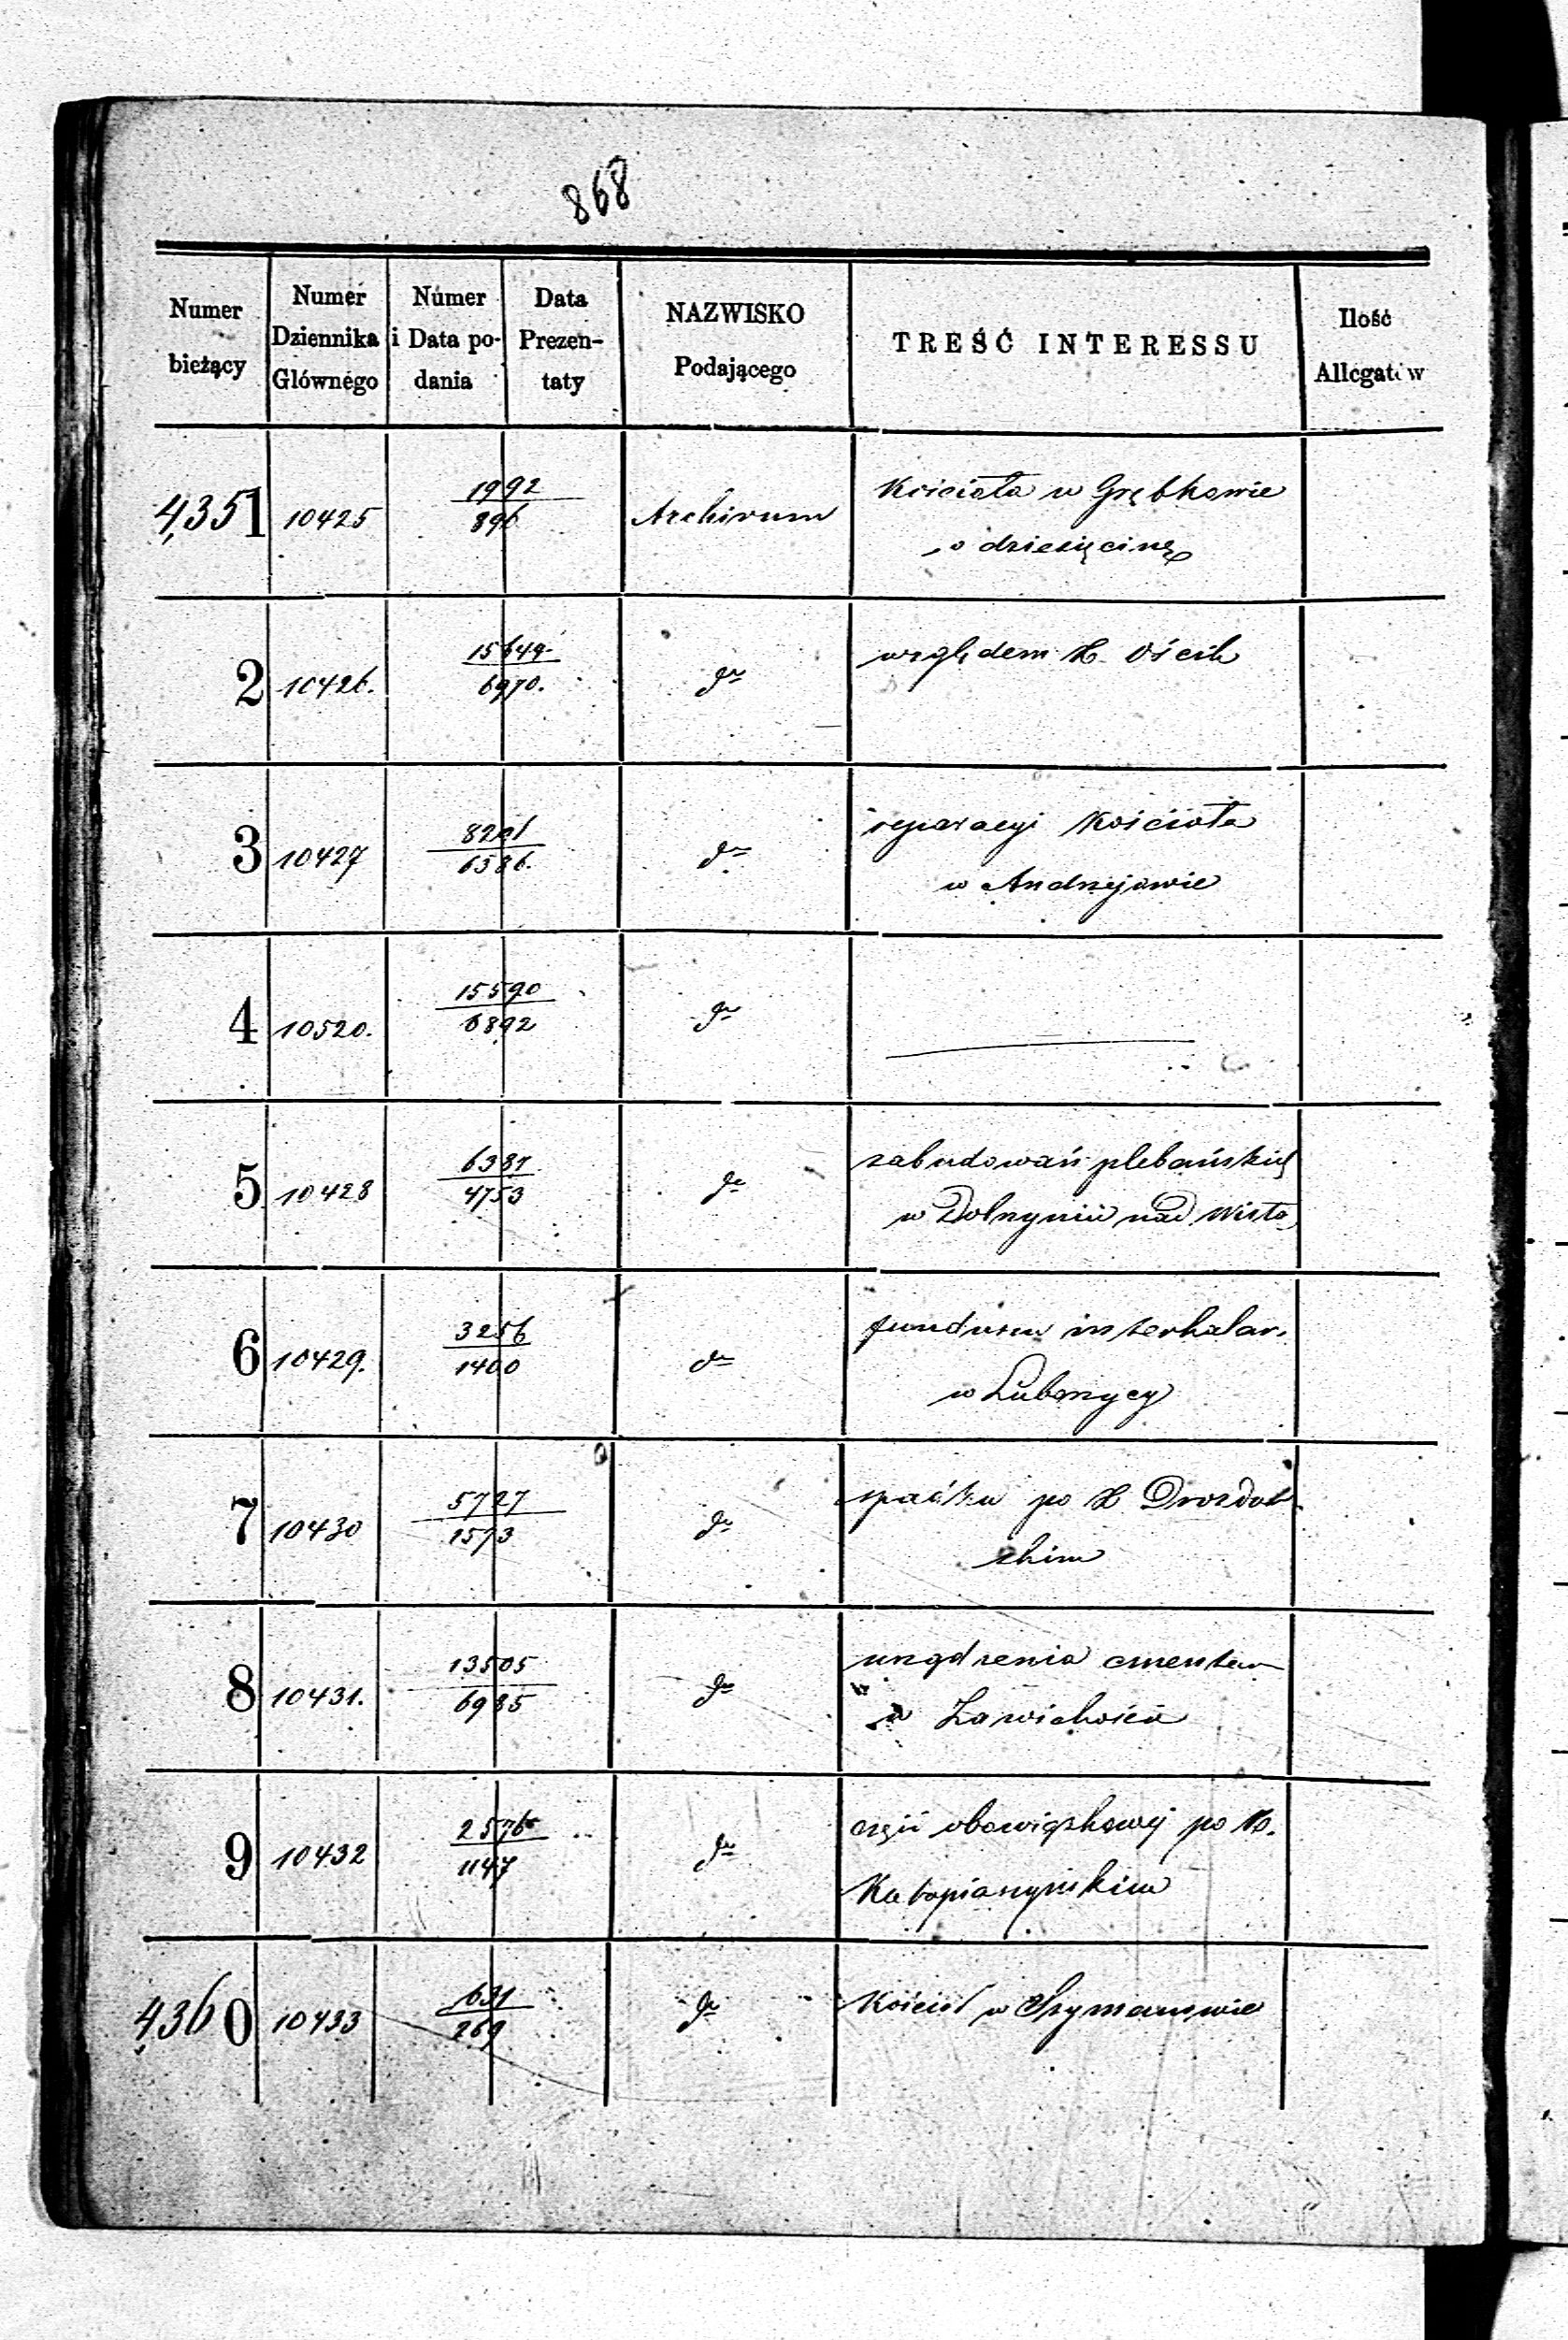 868
Numer bieżący | Numer Dziennika Głównego | Numer i Data podania | Data Prezentaty | NAZWISKO Podającego | TREŚĆ INTERESSU | Ilość Allegatów
4,351 | 10425 | 1992 / 896 | Archivum | Kościoła w Grębkowie
o dziesięcinę
2 | 10426. | 15649 / 6970. | dto | względem X. Ościk
3 | 10427 | 8201 / 6586. | dto | reparacyi Kościoła
w Andrzejowie
4 | 10520. | 15590 / 6892 | dto | —
5 | 10428 | 6381 / 4753 | dto | zabudowań plebańskich
w Dobrzyniu nad Wisłą
6 | 10429. | 3256 / 1400 | dto | funduszu interkalar.
w Luborzycy
7 | 10430 | 5727 / 1573 | dto | spadku po X Drozdow
skim
8 | 10431. | 13505 / 6985 | dto | urządzenia cmentar
w Zawichoście
9 | 10432 | 2576 / 1147 | dto | części obowiązkowej po
4360 | 10433 | 631 / 269 | dto | Kościół w Szymanowie